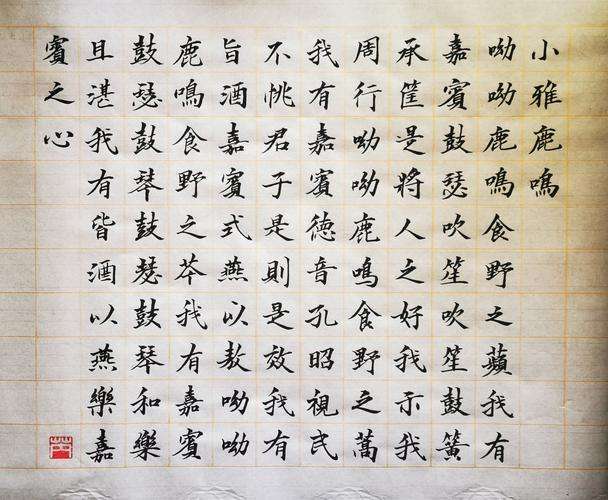 小雅鹿鳴
呦呦鹿鳴食野之蘋我有
嘉賓鼓瑟吹笙吹笙鼓簧
承筐是將人之好我示我
周行呦呦鹿鳴食野之蒿
我有嘉賓德音孔昭視民
不恌君子是則是效我有
旨酒嘉賓式燕以敖呦呦
鹿鳴食野之芩我有嘉賓
鼓瑟鼓琴鼓瑟鼓琴和樂
且湛我有皆酒以燕樂嘉
賓之心